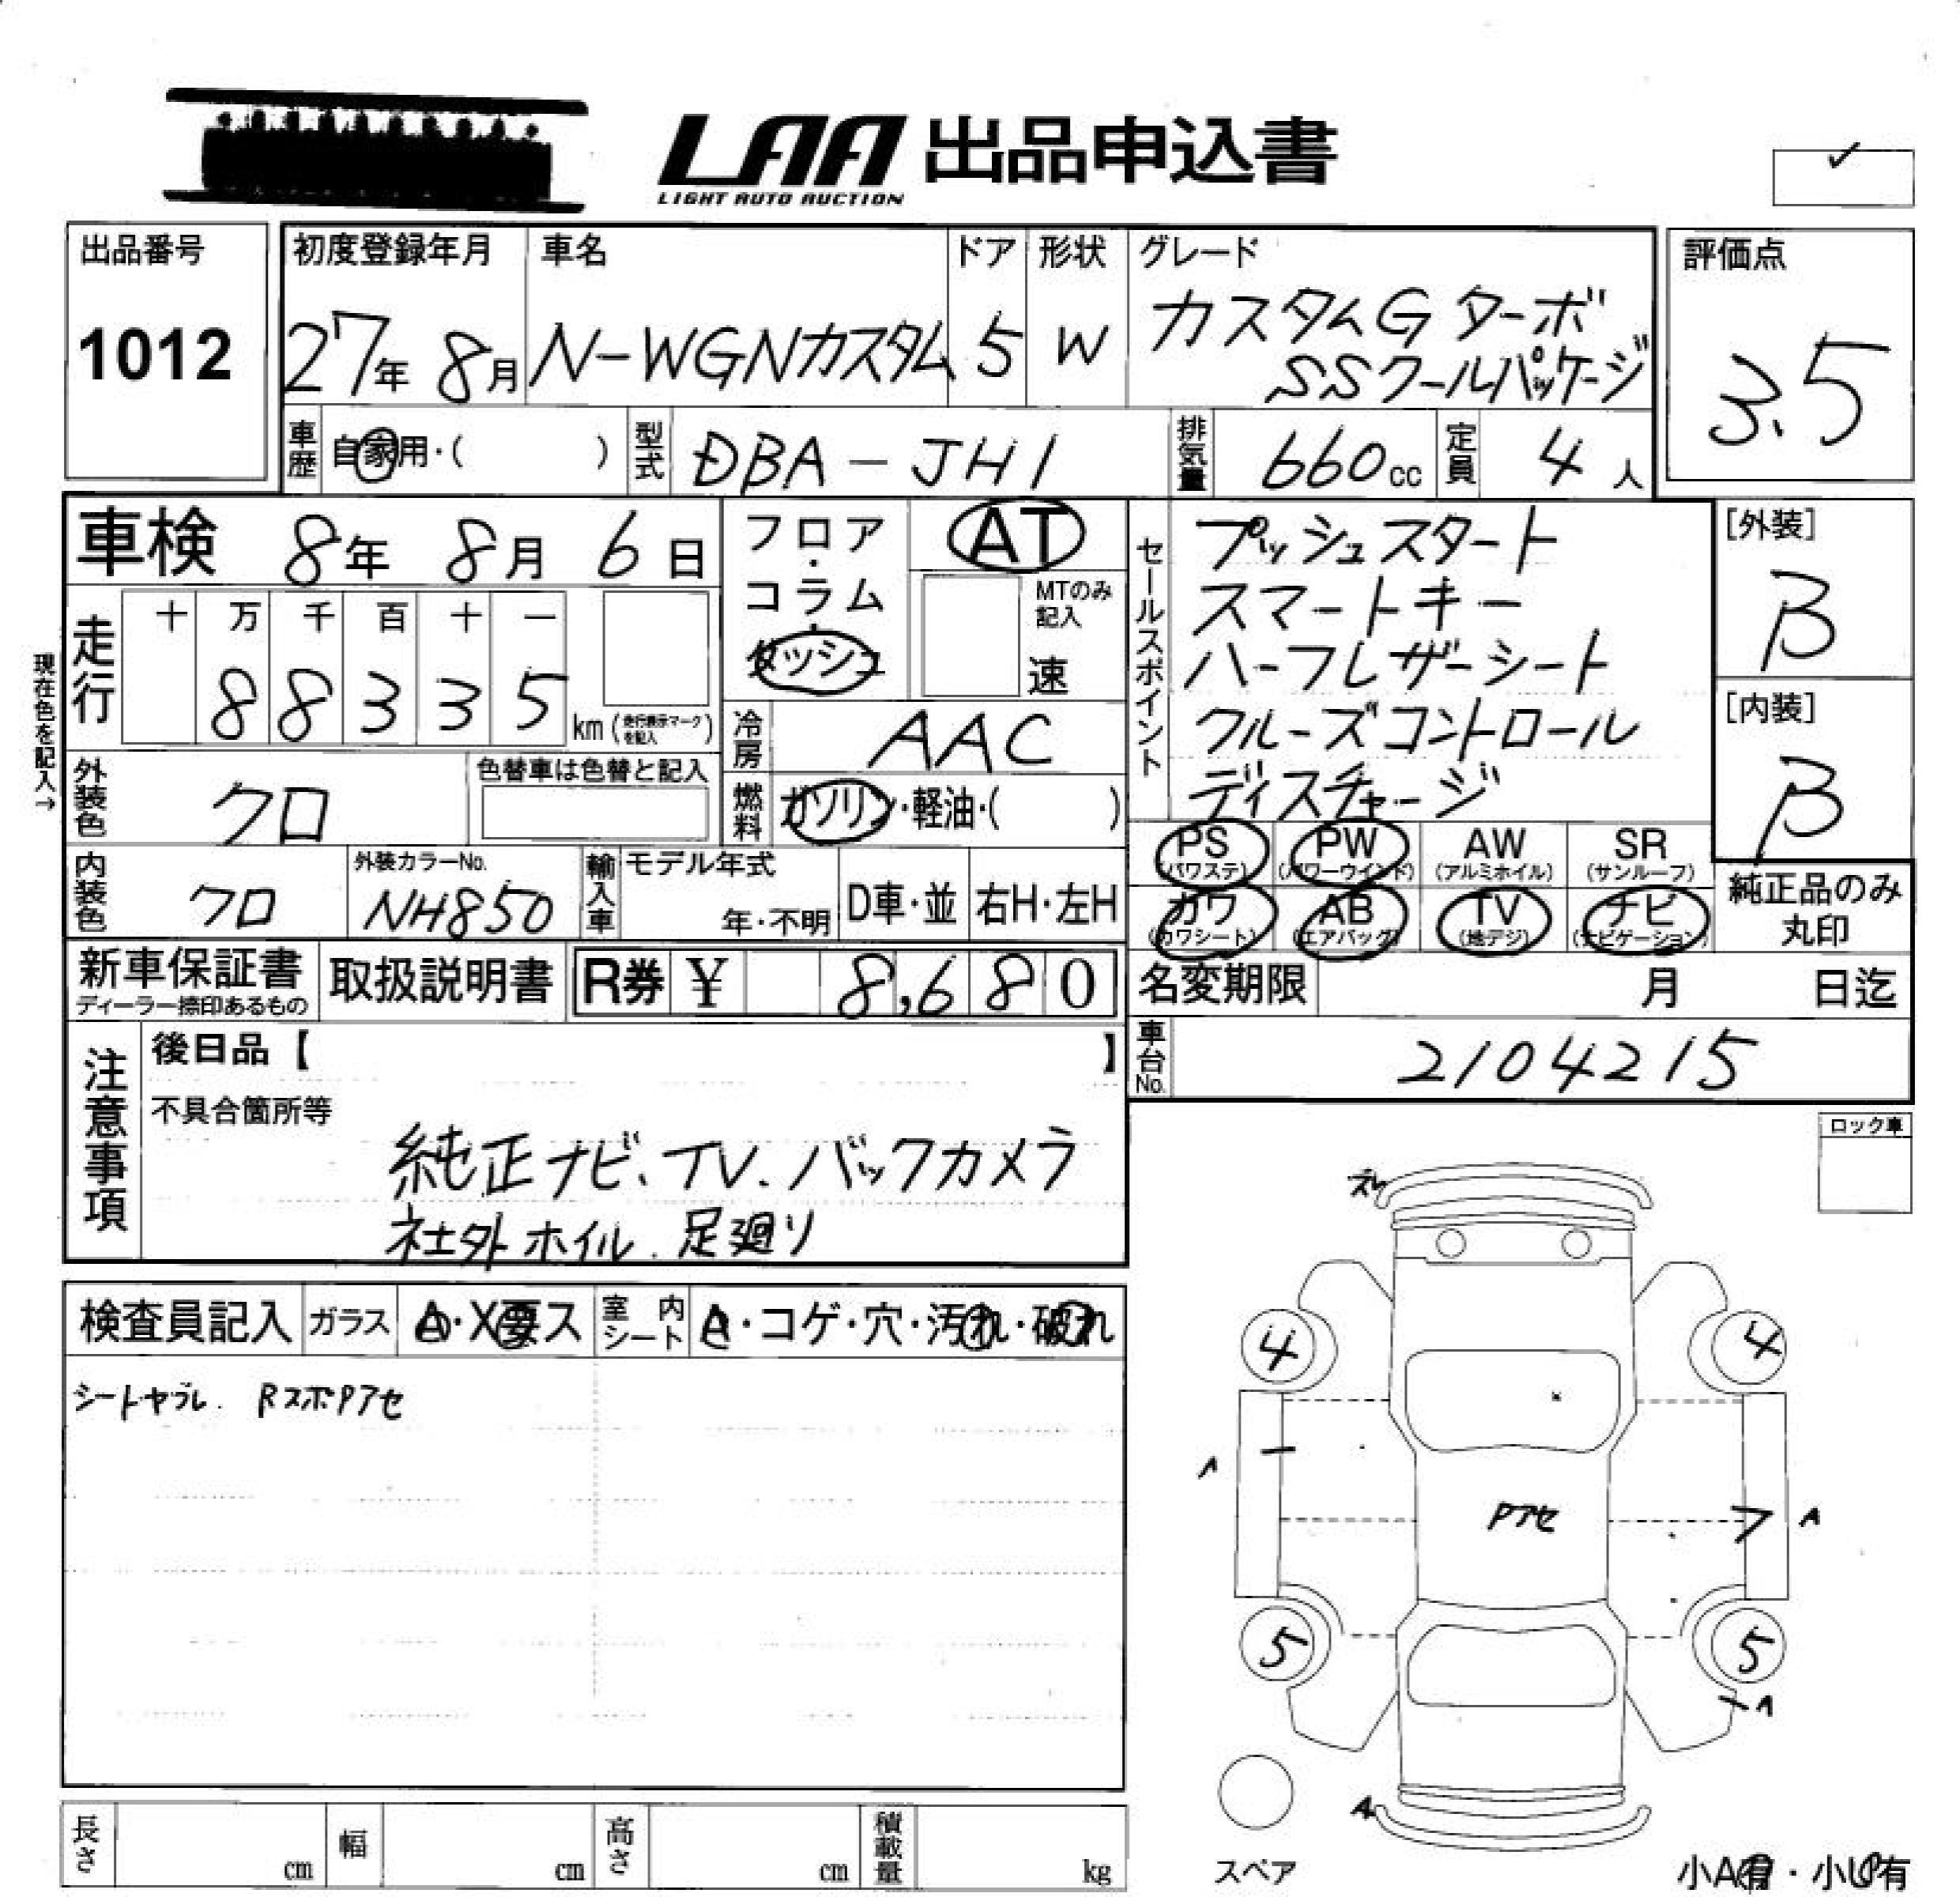 LAA 出品申込書
LIGHT AUTO AUCTION
✓
出品番号
1012
初度登録年月
27年 8月
車名
N-WGNカスタム
ドア
5
形状
W
グレード
カスタムG ターボ
SSクールパッケージ
評価点
3.5
車歴 自家用・( )
型式 DBA-JH1
排気量 660cc
定員 4人
車検 8年 8月 6日
現在色を記入→
走行
十 万 千 百 十 一
8 8 3 3 5 km (走行表示マークを記入)
フロア・コラム・ダッシュ
AT
MTのみ記入
速
冷房 AAC
燃料 ガソリン・軽油・( )
外装色 クロ
色替車は色替と記入
内装色 クロ
外装カラーNo.
NH850
輸入車
モデル年式
年・不明
D車・並
右H・左H
セールスポイント
プッシュスタート
スマートキー
ハーフレザーシート
クルーズコントロール
ディスチャージ
[外装]
B
[内装]
B
PS (パワステ)
PW (パワーウインド)
AW (アルミホイル)
SR (サンルーフ)
カワ (カワシート)
AB (エアバッグ)
TV (地デジ)
ナビ (ナビゲーション)
純正品のみ
丸印
新車保証書
ディーラー捺印あるもの
取扱説明書
R券 ¥ 8,680
名変期限 月 日迄
車台No. 2104215
注意事項
後日品【 】
不具合箇所等
純正ナビ、TV、バックカメラ
社外ホイル、足廻り
ロック車
検査員記入
ガラス A・X要ス
室内シート A・コゲ・穴・汚れ・破れ
シートヤブレ、RスポPアセ
4 4
A
A
Pアセ
5 5
A
A
スペア
小A有・小U有
長さ cm
幅 cm
高さ cm
積載量 kg